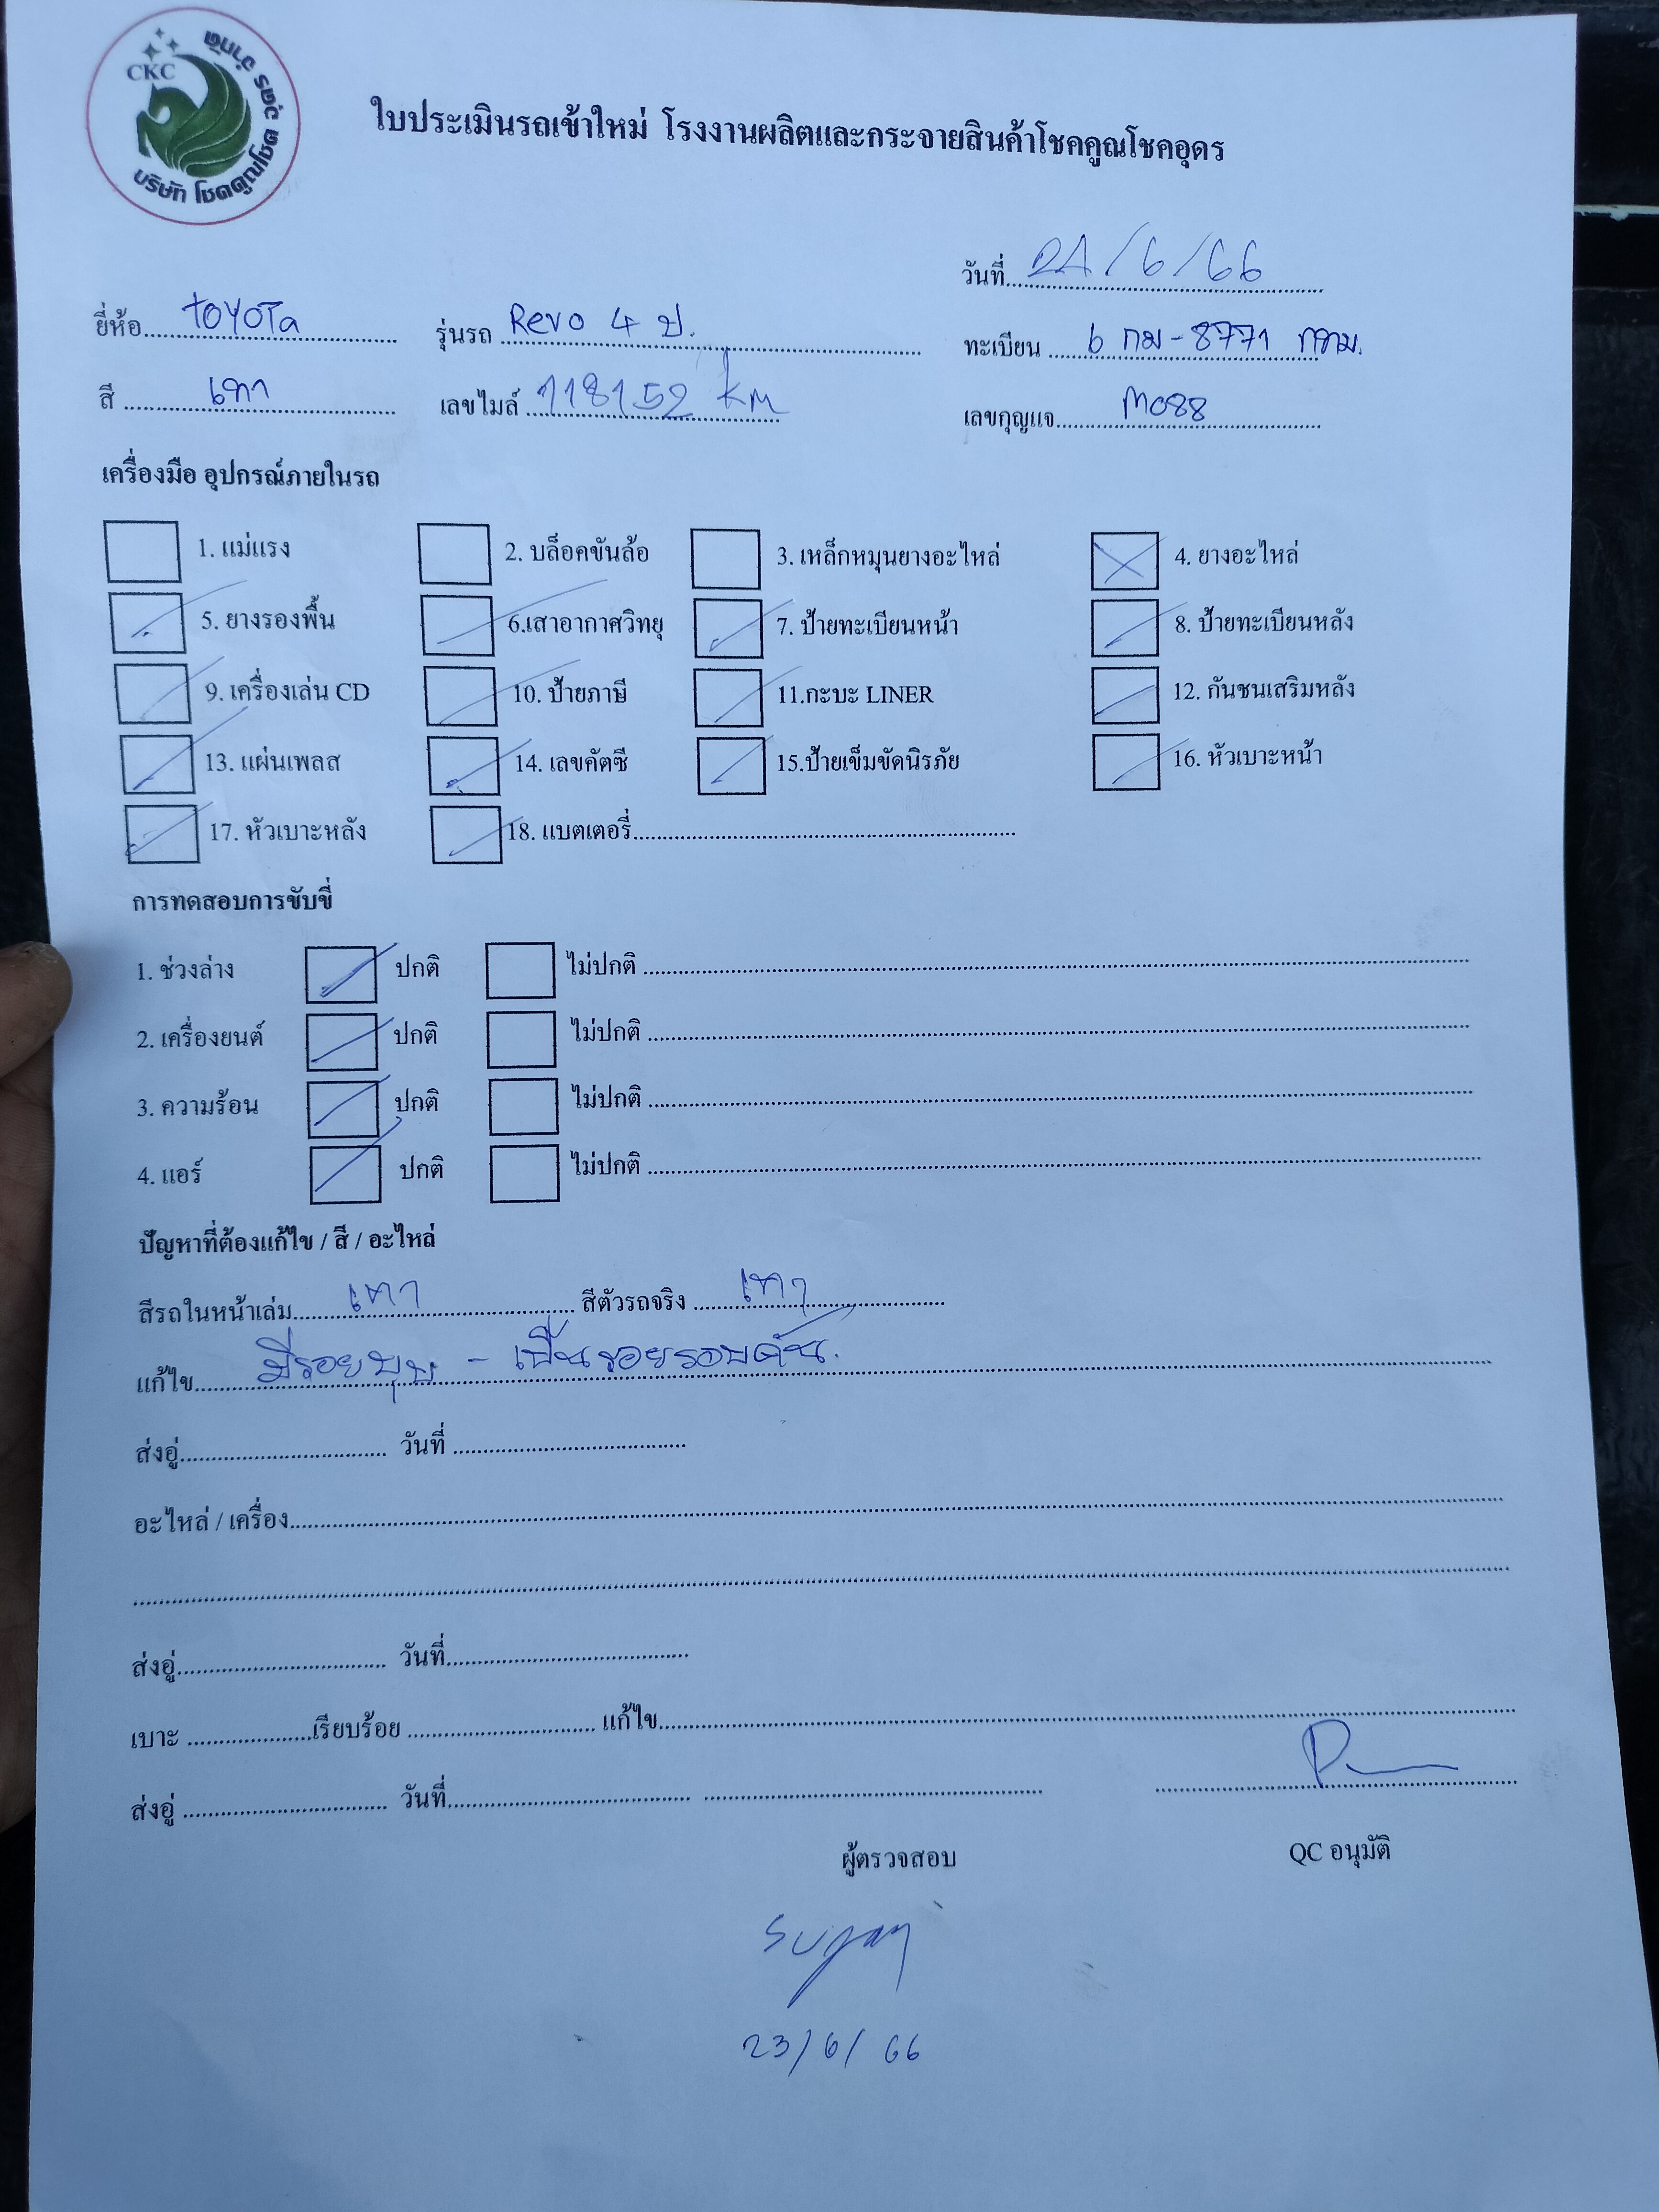 CKC
บริษัท โชคคูณโชค อุดร จำกัด
ใบประเมินรถเข้าใหม่ โรงงานผลิตและกระจายสินค้าโชคคูณโชคอุดร
วันที่ 24/6/66
ยี่ห้อ TOYOTA รุ่นรถ Revo 4 ป. ทะเบียน 6 กม-8771 กทม.
สี เทา เลขไมล์ 118152 km เลขกุญแจ M088
เครื่องมือ อุปกรณ์ภายในรถ
1. แม่แรง 2. บล็อคขันล้อ 3. เหล็กหมุนยางอะไหล่ 4. ยางอะไหล่
5. ยางรองพื้น 6.เสาอากาศวิทยุ 7. ป้ายทะเบียนหน้า 8. ป้ายทะเบียนหลัง
9. เครื่องเล่น CD 10. ป้ายภาษี 11.กะบะ LINER 12. กันชนเสริมหลัง
13. แผ่นเพลส 14. เลขคัตซี 15.ป้ายเข็มขัดนิรภัย 16. หัวเบาะหน้า
17. หัวเบาะหลัง 18. แบตเตอรี่
การทดสอบการขับขี่
1. ช่วงล่าง ปกติ ไม่ปกติ
2. เครื่องยนต์ ปกติ ไม่ปกติ
3. ความร้อน ปกติ ไม่ปกติ
4. แอร์ ปกติ ไม่ปกติ
ปัญหาที่ต้องแก้ไข / สี / อะไหล่
สีรถในหน้าเล่ม เทา สีตัวรถจริง เทา
แก้ไข มีรอยบุบ - เป็นรอยรอบคัน.
ส่งอู่ วันที่
อะไหล่ / เครื่อง
ส่งอู่ วันที่
เบาะ เรียบร้อย แก้ไข
ส่งอู่ วันที่
ผู้ตรวจสอบ QC อนุมัติ
23/6/66